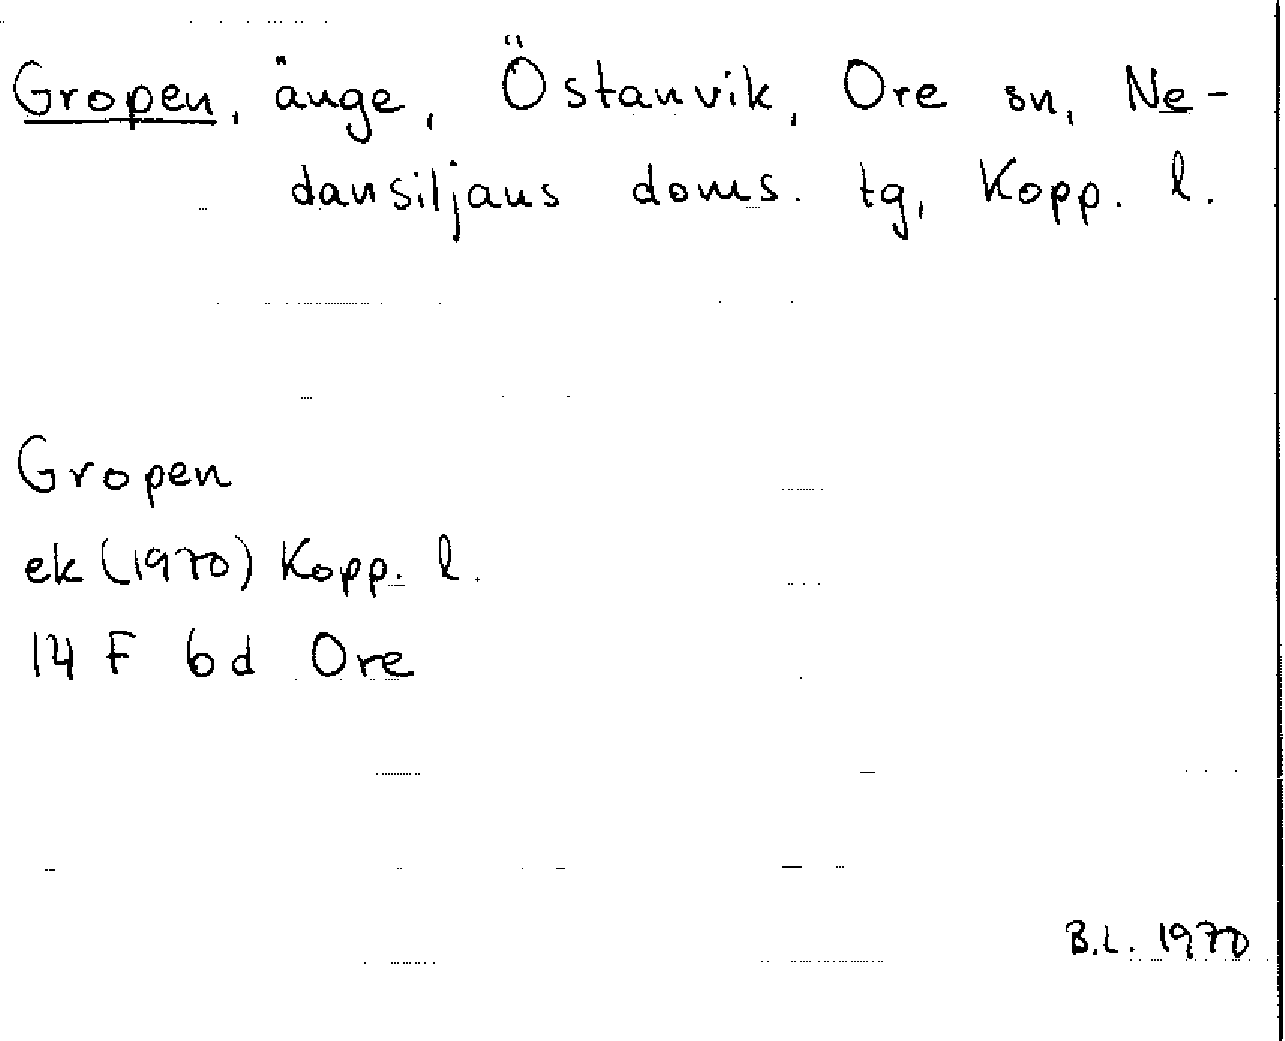 Gropen, änge, Östanvik, Ore sn, Ne-
dansiljans doms. tg, Kopp. l.
Gropen
ek (1970) Kopp. l.
14 F 6d Ore
B.L. 1970